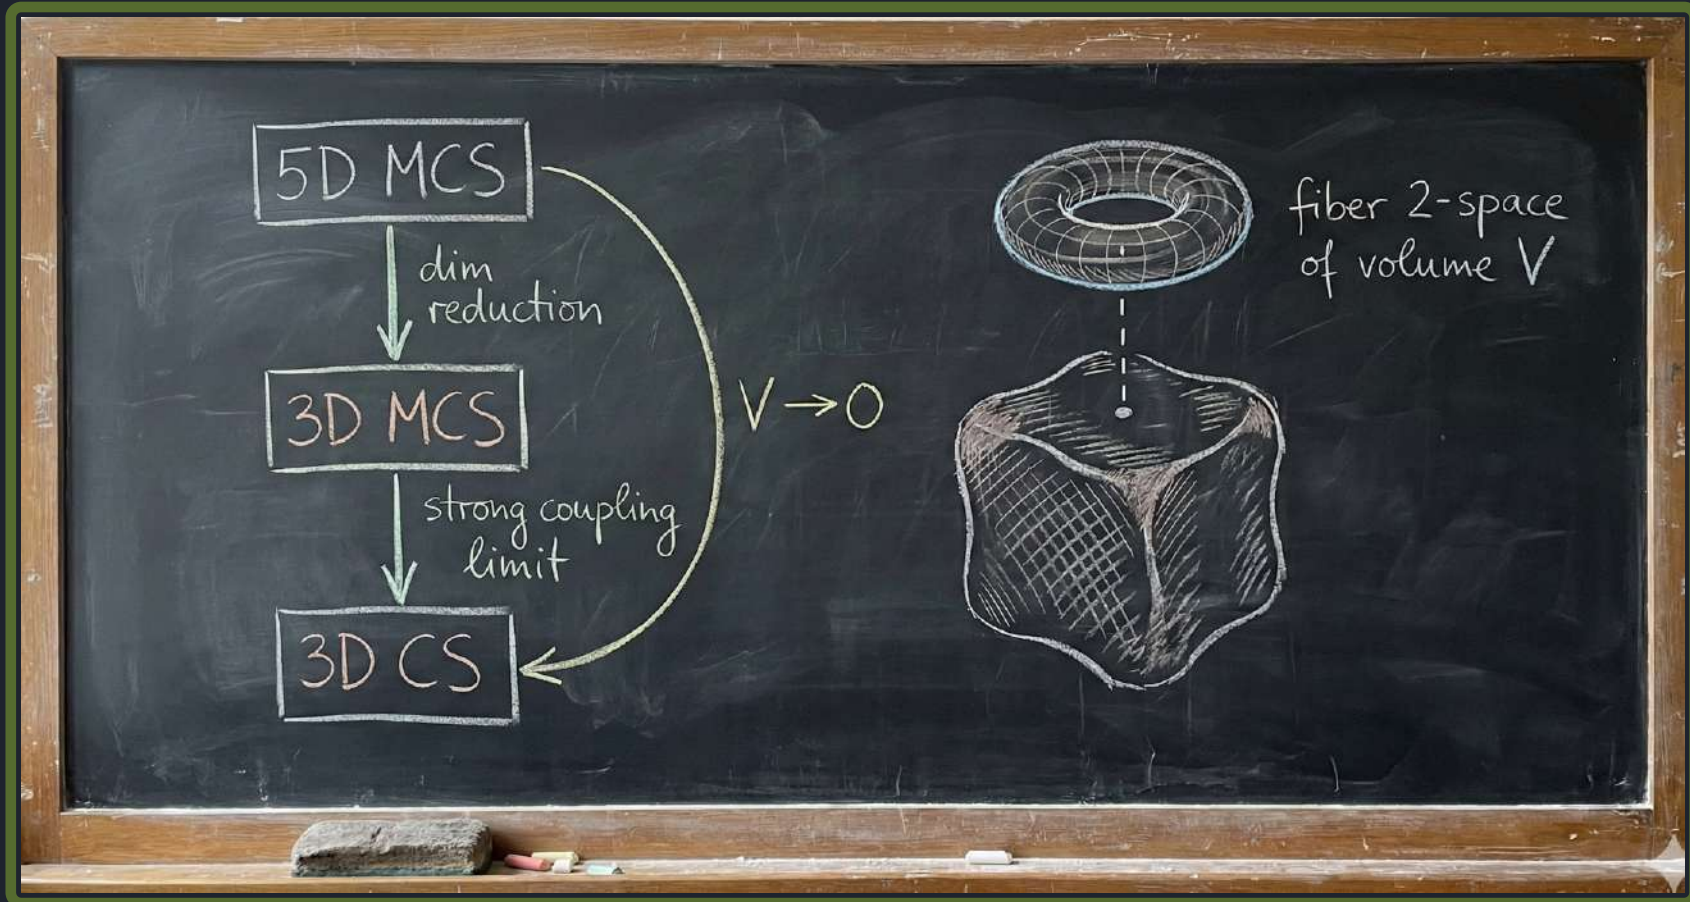 5D MCS
dim
reduction
3D MCS
strong coupling
limit
3D CS
V → O
fiber 2-space
of volume V